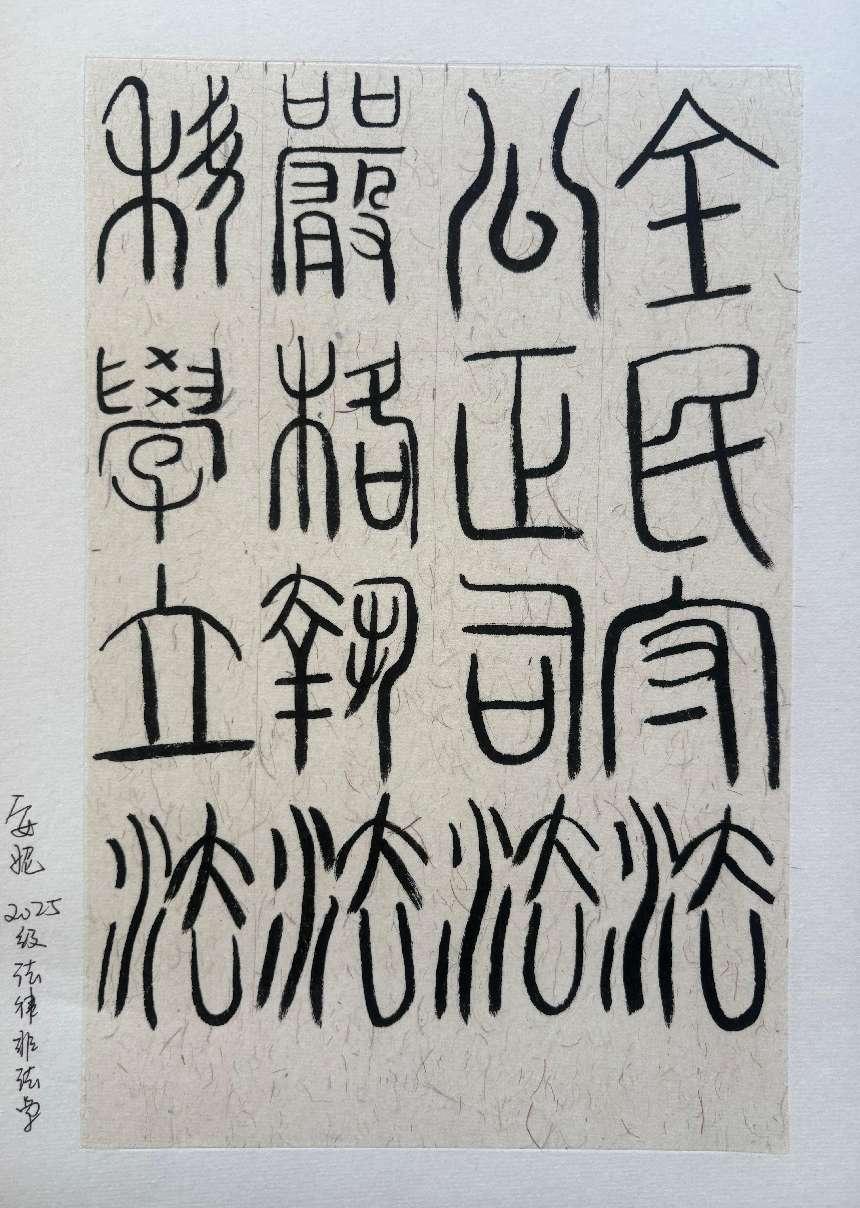 全民守法
公正司法
嚴格執法
科學立法
安妮 2025级法律非法学